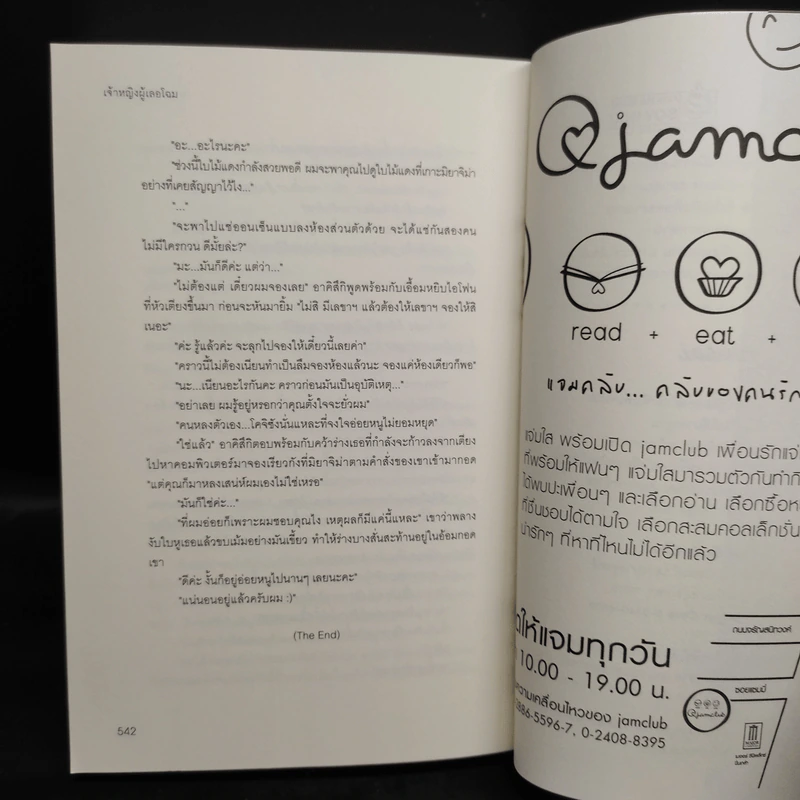 เจ้าหญิงผู้เลอโฉม
"อะ...อะไรนะคะ"
"ช่วงนี้ใบไม้แดงกำลังสวยพอดี ผมจะพาคุณไปดูใบไม้แดงที่เกาะมิยาจิม่า
อย่างที่เคยสัญญาไว้ไง..."
"..."
"จะพาไปแช่ออนเซ็นแบบลงห้องส่วนตัวด้วย จะได้แช่กันสองคน
ไม่มีใครกวน ดีมั้ยล่ะ?"
"มะ...มันก็ดีค่ะ แต่ว่า..."
"ไม่ต้องแต่ เดี๋ยวผมจองเลย" อาคิสึกิพูดพร้อมกับเอื้อมหยิบไอโฟน
ที่หัวเตียงขึ้นมา ก่อนจะหันมายิ้ม "ไม่สิ มีเลขาฯ แล้วต้องให้เลขาฯ จองให้สิ
เนอะ"
"ค่ะ รู้แล้วค่ะ จะลุกไปจองให้เดี๋ยวนี้เลยค่า"
"คราวนี้ไม่ต้องเนียนทำเป็นลืมจองห้องแล้วนะ จองแค่ห้องเดียวก็พอ"
"นะ...เนียนอะไรกันคะ คราวก่อนมันเป็นอุบัติเหตุ..."
"อย่าเลย ผมรู้อยู่หรอกว่าคุณตั้งใจจะยั่วผม"
"คนหลงตัวเอง...โคจิซังนั่นแหละที่จงใจอ่อยหนูไม่ยอมหยุด"
"ใช่แล้ว" อาคิสึกิตอบพร้อมกับคว้าร่างเธอที่กำลังจะก้าวลงจากเตียง
ไปหาคอมพิวเตอร์มาจองเรียวกังที่มิยาจิม่าตามคำสั่งของเขาเข้ามากอด
"แต่คุณก็มาหลงเสน่ห์ผมเองไม่ใช่เหรอ"
"มันก็ใช่ค่ะ..."
"ที่ผมอ่อยก็เพราะผมชอบคุณไง เหตุผลก็มีแค่นี้แหละ" เขาว่าพลาง
งับใบหูเธอแล้วขบเม้มอย่างมันเขี้ยว ทำให้ร่างบางสั่นสะท้านอยู่ในอ้อมกอด
เขา
"ดีค่ะ งั้นก็อยู่อ่อยหนูไปนานๆ เลยนะคะ"
"แน่นอนอยู่แล้วครับผม :)"
(The End)
542
@jamc
read + eat +
แจมคลับ... คลับของคนรัก
แจ่มใส พร้อมเปิด jamclub เพื่อนรักแจ่
ที่พร้อมให้แฟนๆ แจ่มใสมารวมตัวกันทำกิ
ได้พบปะเพื่อนๆ และเลือกอ่าน เลือกซื้อห
ที่ชื่นชอบได้ตามใจ เลือกสะสมคอลเล็กชั่น
น่ารักๆ ที่หาที่ไหนไม่ได้อีกแล้ว
ให้แจมทุกวัน
10.00 - 19.00 น.
ความเคลื่อนไหวของ jamclub
886-5596-7, 0-2408-8395
ถนนจรัญสนิทวงศ์
ซอยแซมมี่
@jamclub